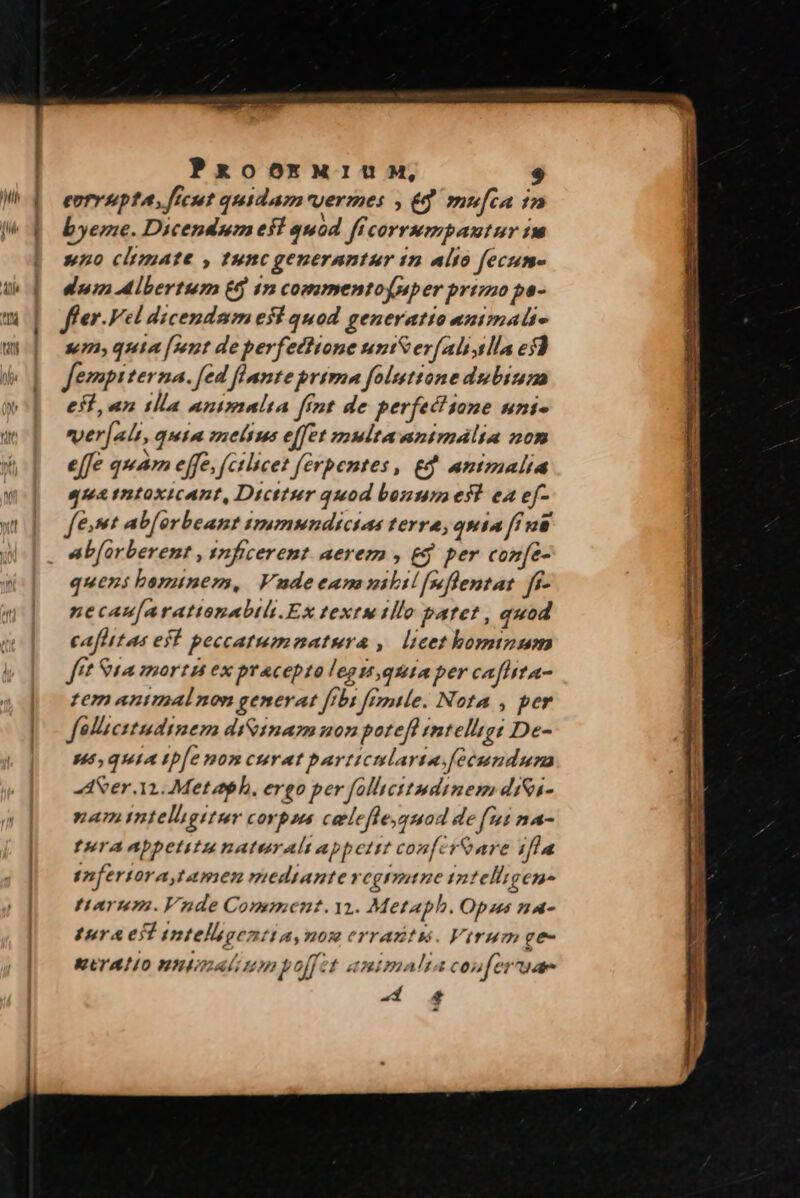 PROOEMIUM, 9
corrupta, ſicut quidam vermes, & muſca in
hyeme. Dicendum eſt quòd ſi corrumpantur in
uno climate, tunc generantur in alio ſecun-
dum Albertum & in commento ſuper primo po-
ſter. Vel dicendum eſt quod generatio animali-
um, quia ſunt de perfectione univerſali, illa eſt
ſempiterna. ſed ſtante prima ſolutione dubium
eſt, an illa animalia ſint de perfectione uni-
verſali, quia melius eſſet multa animália non
eſſe quàm eſſe, ſcilicet ſerpentes, & animalia
quæ intoxicant, Dicitur quod bonum eſt ea eſ-
ſe, ut abſorbeant immundicias terræ, quia ſi nō
abſorberent, inficerent aerem, & per conſe-
quens hominem, Vnde eam nihil ſuſtentat ſi-
ne cauſa rationabili. Ex textu illo patet, quod
caſtitas eſt peccatum natura, licet hominum
ſit via mortis ex præcepto legis, quia per caſtita-
tem animal non generat ſibi ſimile. Nota, per
ſollicitudinem divinam non poteſt intelligi De-
us, quia ipſe non curat particularia, ſecundum
Aver. 12. Metaph. ergo per ſollicitudinem divi-
nam intelligitur corpus cæleſte, quod de ſui na-
tura appetitu naturali appetit conſervare iſta
inferiora, tamen mediante regimine intelligen-
tiarum. Vnde Comment. 12. Metaph. Opus na-
turæ eſt intelligentia, non errantis. Vtrum ge-
neratio animalium poſſet animalia conſervar-
A 4